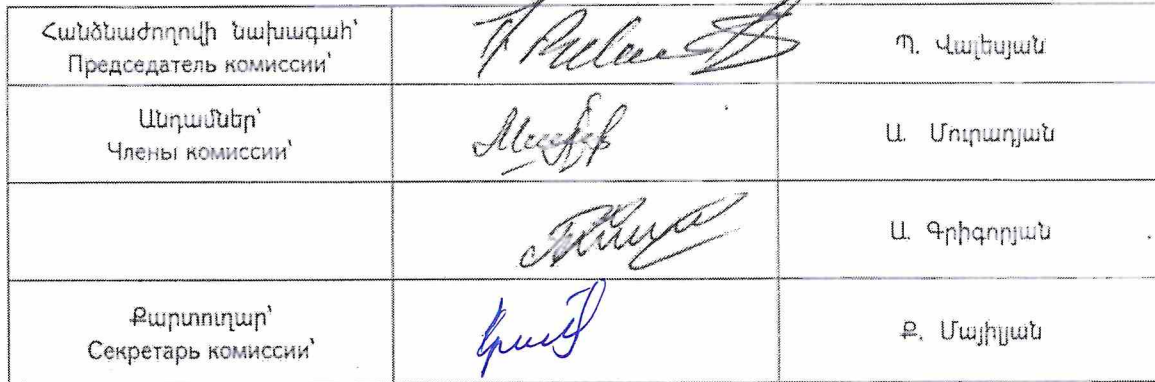 Հանձնաժողովի նախագահ՝
Председатель комиссии՝
Պ. Վալեսյան
Անդամներ՝
Члены комиссии՝
Ա. Մուրադյան
Ա. Գրիգորյան
Քարտուղար՝
Секретарь комиссии՝
Ք. Մայիլյան